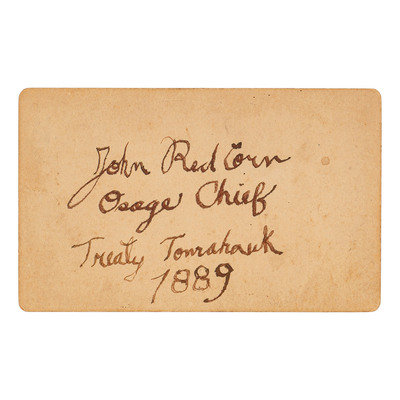 John Red Corn
Osage Chief
Treaty Tomahauk
1889